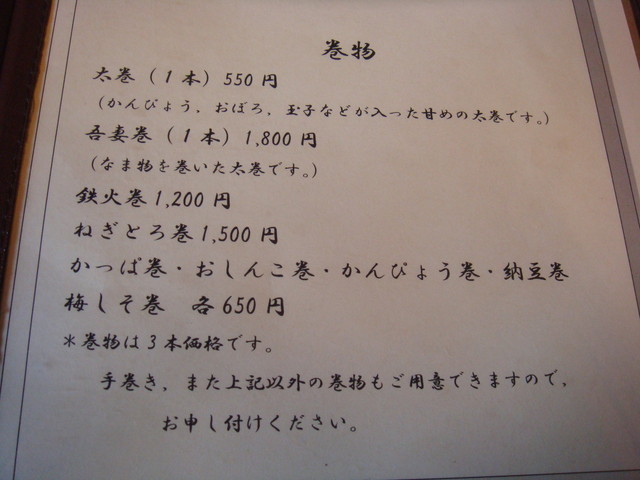 巻物
太巻（1本）550円
（かんぴょう，おぼろ，玉子などが入った甘めの太巻です。）
吾妻巻（1本）1,800円
（なま物を巻いた太巻です。）
鉄火巻1,200円
ねぎとろ巻1,500円
かっぱ巻・おしんこ巻・かんぴょう巻・納豆巻
梅しそ巻　各650円
＊巻物は3本価格です。
手巻き，また上記以外の巻物もご用意できますので，
お申し付けください。